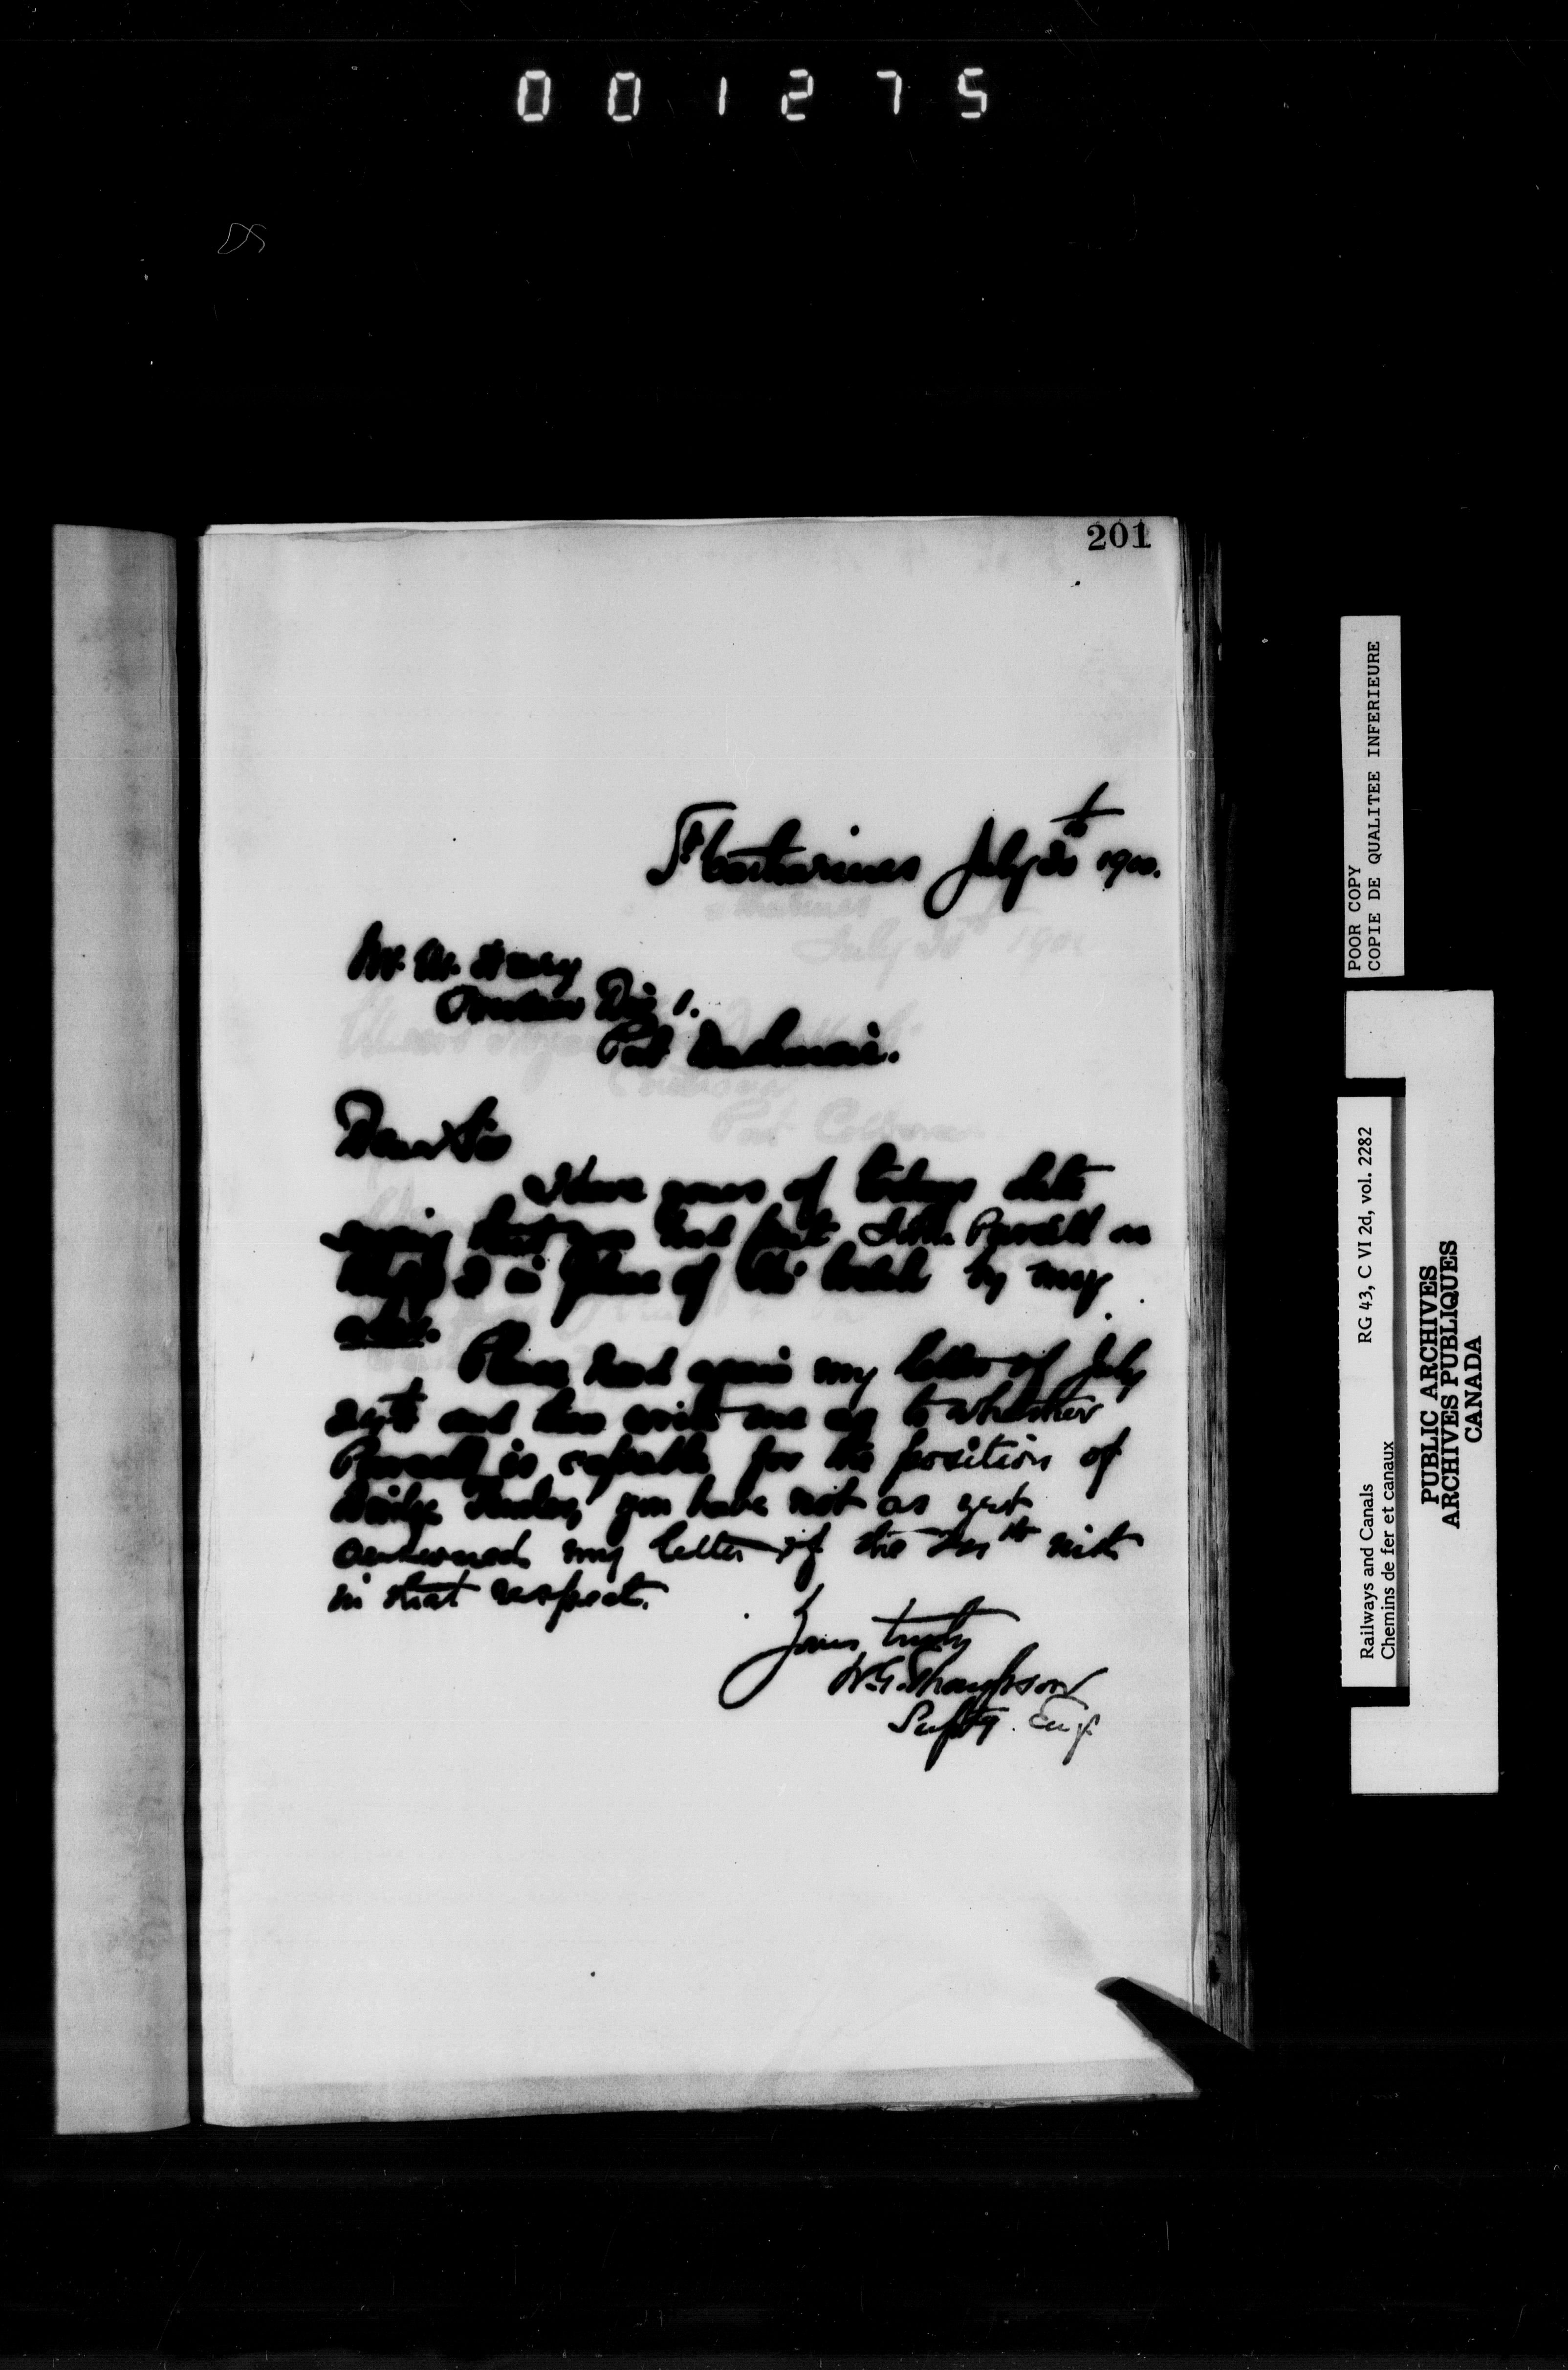 001275
201
St Catharines July 30th 1900.
Mr. W. Henry
Div 1.
Port Dalhousie.
Dear Sir
I have yours of todays date
saying that you had put John Boswell on
in place of by my
order.
Please read again my letter of July
and then write me as to whether
is capable for the position of
Bridge Tender, you have not as yet
answered my letter of the inst
in that respect.
Yours truly
W.G. Thompson
Suptg. Eng.
POOR COPY
COPIE DE QUALITEE INFERIEURE
Railways and Canals RG 43, C VI 2d, vol. 2282
Chemins de fer et canaux
PUBLIC ARCHIVES
ARCHIVES PUBLIQUES
CANADA